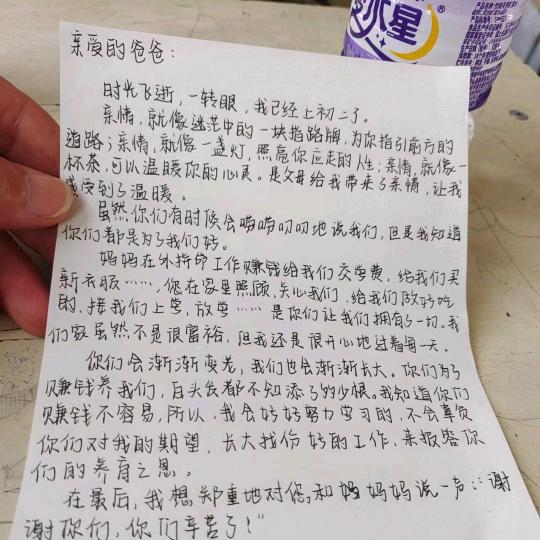 水星
亲爱的爸爸：
时光飞逝，一转眼，我已经上初二了。
亲情，就像迷茫中的一块指路牌，为你指引前方的
道路；亲情，就像一盏灯，照亮你应走的人生；亲情，就像一
杯茶，可以温暖你的心灵。是父母给我带来了亲情，让我
感受到了温暖。
虽然你们有时候会唠唠叨叨地说我们，但是我知道
你们都是为了我们好。
妈妈在外拼命工作赚钱给我们交学费，给我们买
新衣服……，您在家里照顾、关心我们，给我们做好吃
的，接我们上学，放学……是你们让我们拥有了一切。我
们家虽然不是很富裕，但我还是很开心地过着每一天。
你们会渐渐变老，我们也会渐渐长大。你们为了
赚钱养我们，白头发都不知添了多少根。我知道你们
赚钱不容易，所以，我会好好努力学习的，不会辜负
你们对我的期望，长大找份好的工作，来报答你
们的养育之恩。
在最后，我想郑重地对您和妈妈妈说一声：：谢
谢你们，你们辛苦了！"